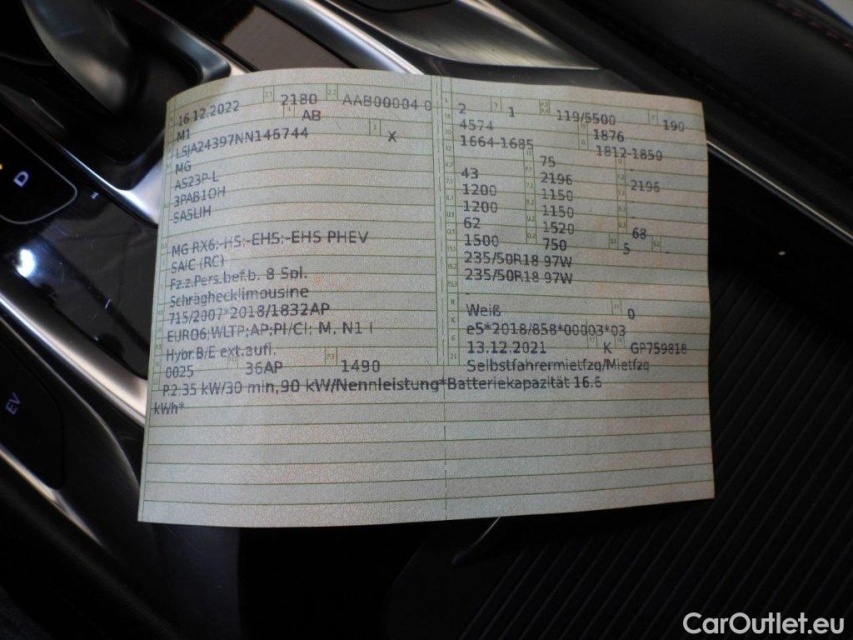 16.12.2022 2180 AAB00004 0
M1 AB
LSJA24397NN146744 X
MG
AS23P-L
3PAB1OH
-SA5LIH
MG RX6;-HS;-EHS;-EHS PHEV
SAIC (RC)
Fz.z.Pers.bef.b. 8 Spl.
Schräghecklimousine
715/2007*2018/1832AP
EURO6;WLTP;AP;PI/CI; M, N1 I
Hybr.B/E ext.aufl.
0025 36AP 1490
P.2:35 kW/30 min,90 kW/Nennleistung*Batteriekapazität 16.6
kWh*
2 1 119/5500 190
4574 1876
1664-1685 1812-1850
75
43 2196 2196
1200 1150
1200 1150
62 1520 68
1500 750 5
235/50R18 97W
235/50R18 97W
Weiß 0
e5*2018/858*00003*03
13.12.2021 K GP759818
Selbstfahrermietfzg/Mietfzg
D
EV
CarOutlet.eu